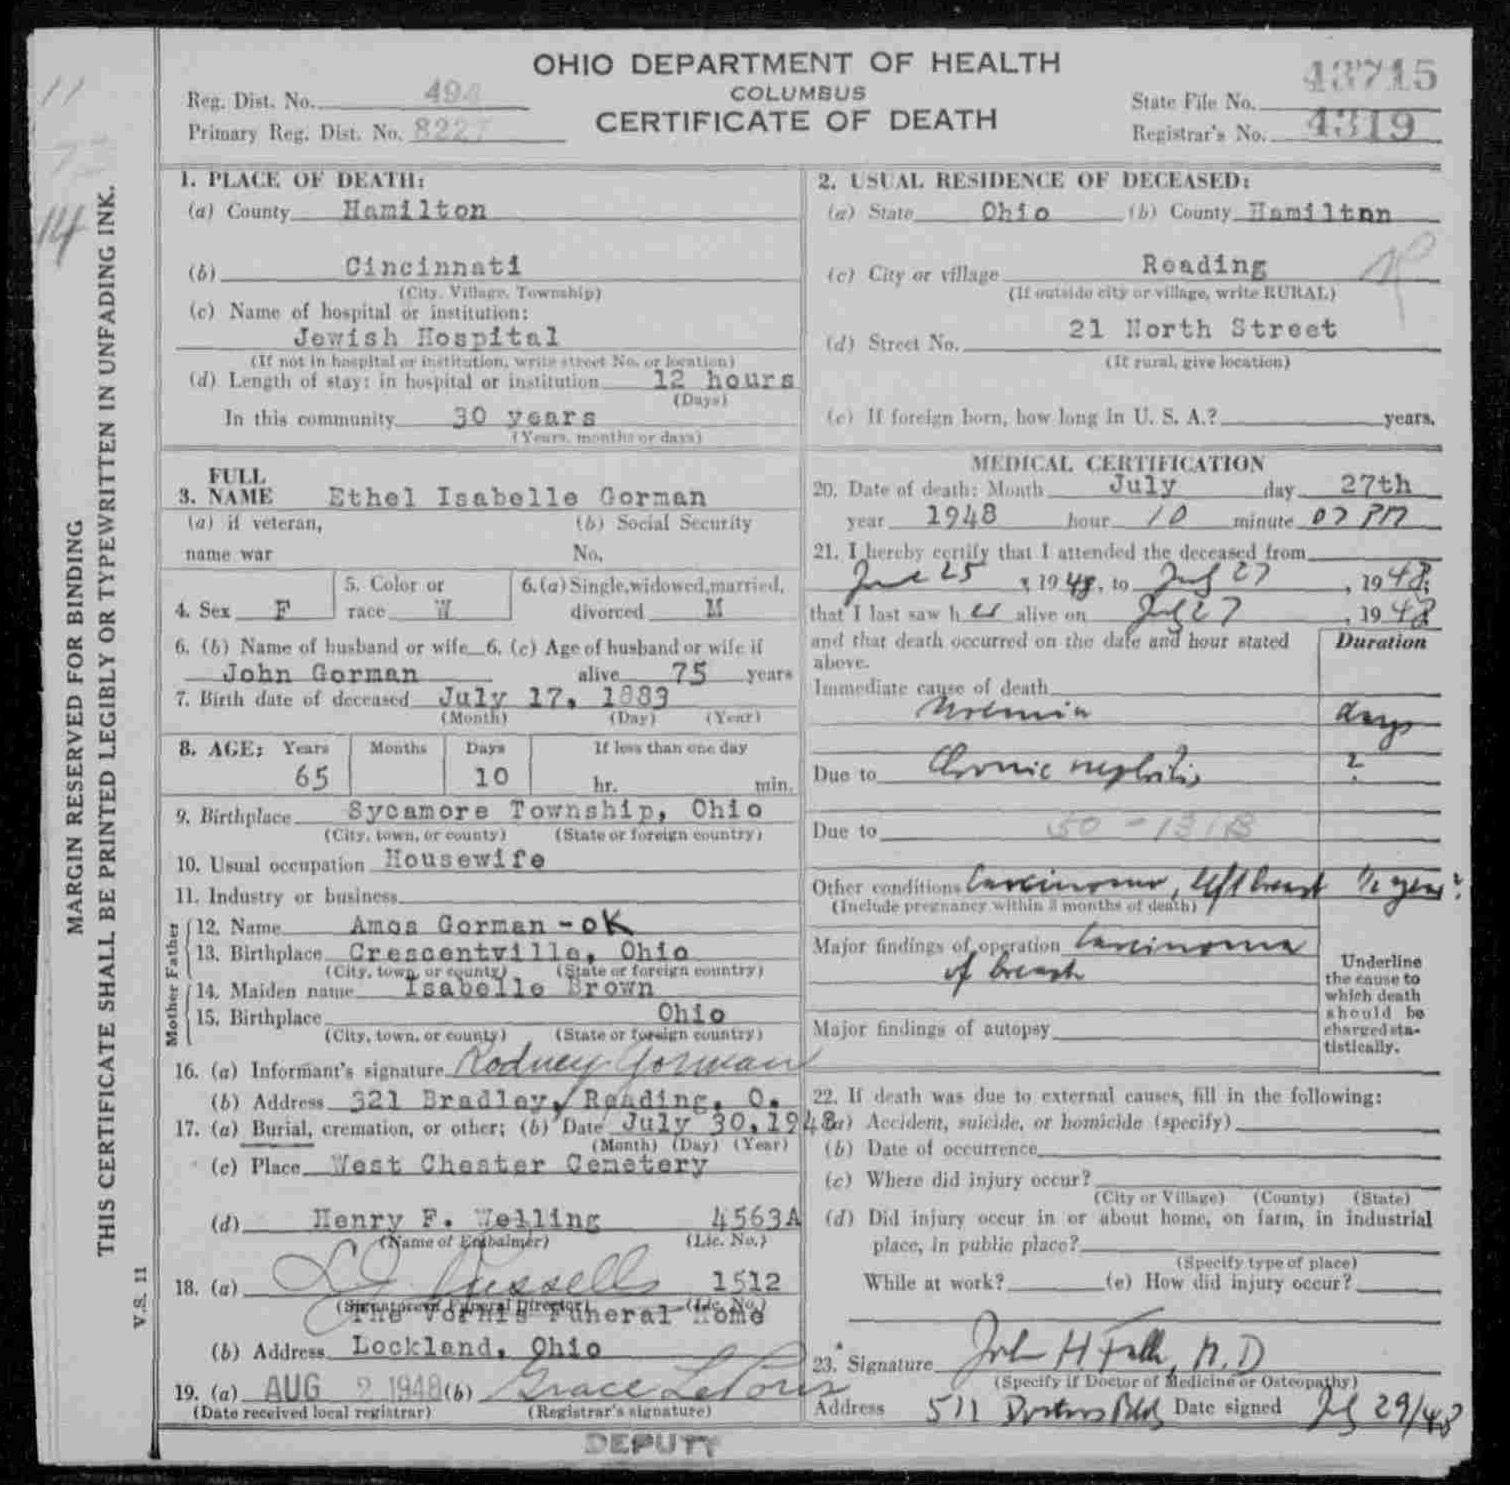 OHIO DEPARTMENT OF HEALTH
COLUMBUS
CERTIFICATE OF DEATH
Reg. Dist. No. 494
Primary Reg. Dist. No. 8227
State File No. 43715
Registrar's No. 4319
11
73
14
MARGIN RESERVED FOR BINDING
THIS CERTIFICATE SHALL BE PRINTED LEGIBLY OR TYPEWRITTEN IN UNFADING INK.
V.S. 11
1. PLACE OF DEATH:
(a) County Hamilton
(b) Cincinnati
(City, Village, Township)
(c) Name of hospital or institution:
Jewish Hospital
(If not in hospital or institution, write street No. or location)
(d) Length of stay: in hospital or institution 12 hours
(Days)
In this community 30 years
(Years, months or days)
2. USUAL RESIDENCE OF DECEASED:
(a) State Ohio (b) County Hamiltnn
(c) City or village Reading
(If outside city or village, write RURAL)
(d) Street No. 21 North Street
(If rural, give location)
(e) If foreign born, how long in U. S. A.? years.
3. FULL NAME Ethel Isabelle Gorman
(a) if veteran, (b) Social Security
name war No.
4. Sex F 5. Color or race W 6.(a) Single, widowed, married, divorced M
6. (b) Name of husband or wife 6. (c) Age of husband or wife if
John Gorman alive 75 years
7. Birth date of deceased July 17, 1883
(Month) (Day) (Year)
8. AGE: Years Months Days If less than one day
65 10 hr. min.
9. Birthplace Sycamore Township, Ohio
(City, town, or county) (State or foreign country)
10. Usual occupation Housewife
11. Industry or business
Father
12. Name Amos Gorman - OK
13. Birthplace Crescentville, Ohio
(City, town, or county) (State or foreign country)
Mother
14. Maiden name Isabelle Brown
15. Birthplace Ohio
(City, town, or county) (State or foreign country)
16. (a) Informant's signature Rodney Gorman
(b) Address 321 Bradley, Reading, O.
17. (a) Burial, cremation, or other; (b) Date July 30, 1948
(Month) (Day) (Year)
(c) Place West Chester Cemetery
(d) Henry F. Welling 4563A
(Name of Embalmer) (Lic. No.)
18. (a) Russell 1512
(Signature of Funeral Director) (Lic. No.)
The Vorhis Funeral Home
(b) Address Lockland, Ohio
19. (a) AUG 2 1948 (b) Grace
(Date received local registrar) (Registrar's signature)
DEPUTY
MEDICAL CERTIFICATION
20. Date of death: Month July day 27th
year 1948 hour 10 minute 07 PM
21. I hereby certify that I attended the deceased from
June 25, 1948, to July 27, 1948;
that I last saw her alive on July 27, 1948
and that death occurred on the date and hour stated above.
Duration
Immediate cause of death
Uremia days
Due to Chronic nephritis ?
Due to 50 - 131B
Other conditions Carcinoma, left breast 1/2 year?
(Include pregnancy within 3 months of death)
Major findings of operation Carcinoma
of breast
Major findings of autopsy
Underline
the cause to
which death
should be
charged sta-
tistically.
22. If death was due to external causes, fill in the following:
(a) Accident, suicide, or homicide (specify)
(b) Date of occurrence
(c) Where did injury occur?
(City or Village) (County) (State)
(d) Did injury occur in or about home, on farm, in industrial
place, in public place?
(Specify type of place)
While at work? (e) How did injury occur?
23. Signature John H M.D
(Specify if Doctor of Medicine or Osteopathy)
Address 511 Doctors Bldg Date signed July 29/48